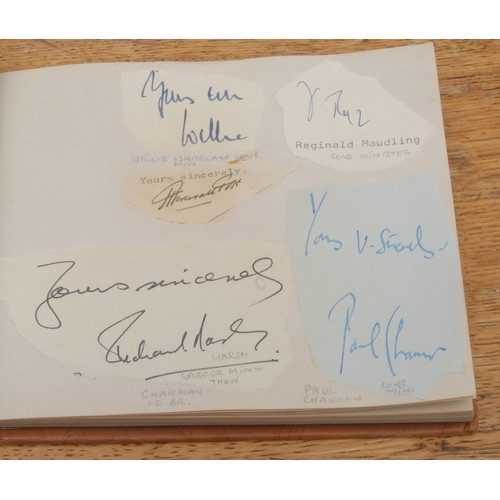 Yours ever
Willie
WILLIE WHITELAW CONS
MIN
Reginald Maudling
CONS MINISTER
Yours sincerely,
Yours sincerely
Richard Marsh
MARSH
LABOUR MINS
THEN
CHAIRMAN
OF BR.
Yours v. sincerely
Paul Channon
PAUL
CHANNON
CONS
MIN.